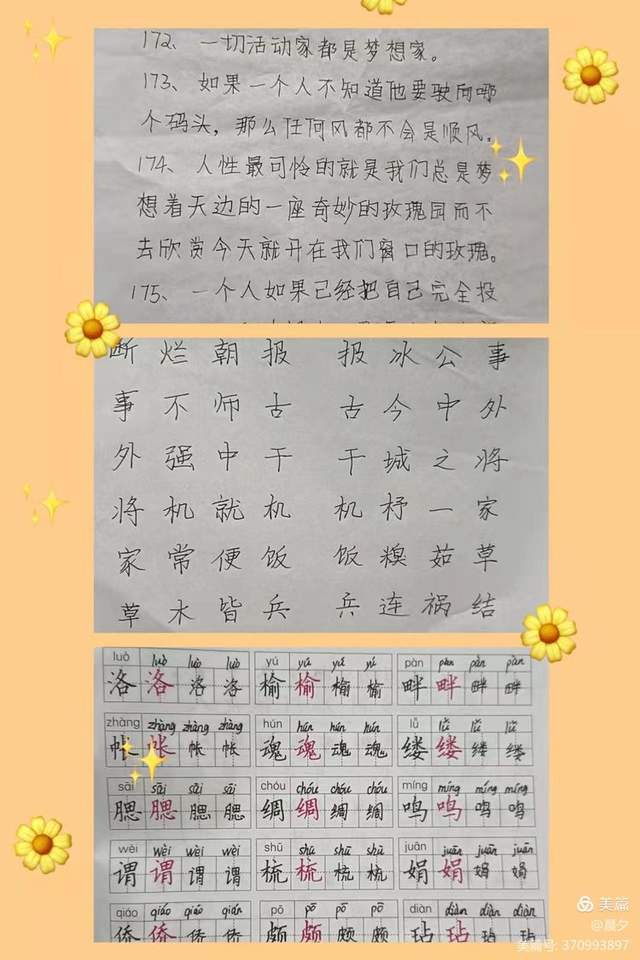 172、一切活动家都是梦想家。
173、如果一个人不知道他要驶向哪
个码头，那么任何风都不会是顺风。
174、人性最可怜的就是我们总是梦
想着天边的一座奇妙的玫瑰园而不
去欣赏今天就开在我们窗口的玫瑰。
175、一个人如果已经把自己完全投
断 烂 朝 报 报 冰 公 事
事 不 师 古 古 今 中 外
外 强 中 干 干 城 之 将
将 机 就 机 机 杼 一 家
家 常 便 饭 饭 糗 茹 草
草 木 皆 兵 兵 连 祸 结
luò luò luò luò yú yú yú yú pàn pàn pàn pàn
洛 洛 洛 洛 榆 榆 榆 榆 畔 畔 畔 畔
zhàng zhàng zhàng zhàng hún hún hún hún lǚ lǚ lǚ lǚ
帐 帐 帐 帐 魂 魂 魂 魂 缕 缕 缕 缕
sāi sāi sāi sāi chóu chóu chóu chóu míng míng míng míng
腮 腮 腮 腮 绸 绸 绸 绸 鸣 鸣 鸣 鸣
wèi wèi wèi wèi shū shū shū shū juān juān juān juān
谓 谓 谓 谓 梳 梳 梳 梳 娟 娟 娟 娟
qiáo qiáo qiáo qiáo pō pō pō pō diàn diàn diàn diàn
侨 侨 侨 侨 颇 颇 颇 颇 玷 玷 玷 玷
美篇
@晨夕
美篇号: 370993897